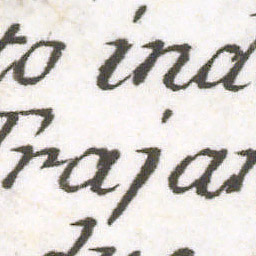 to ind
Trajan